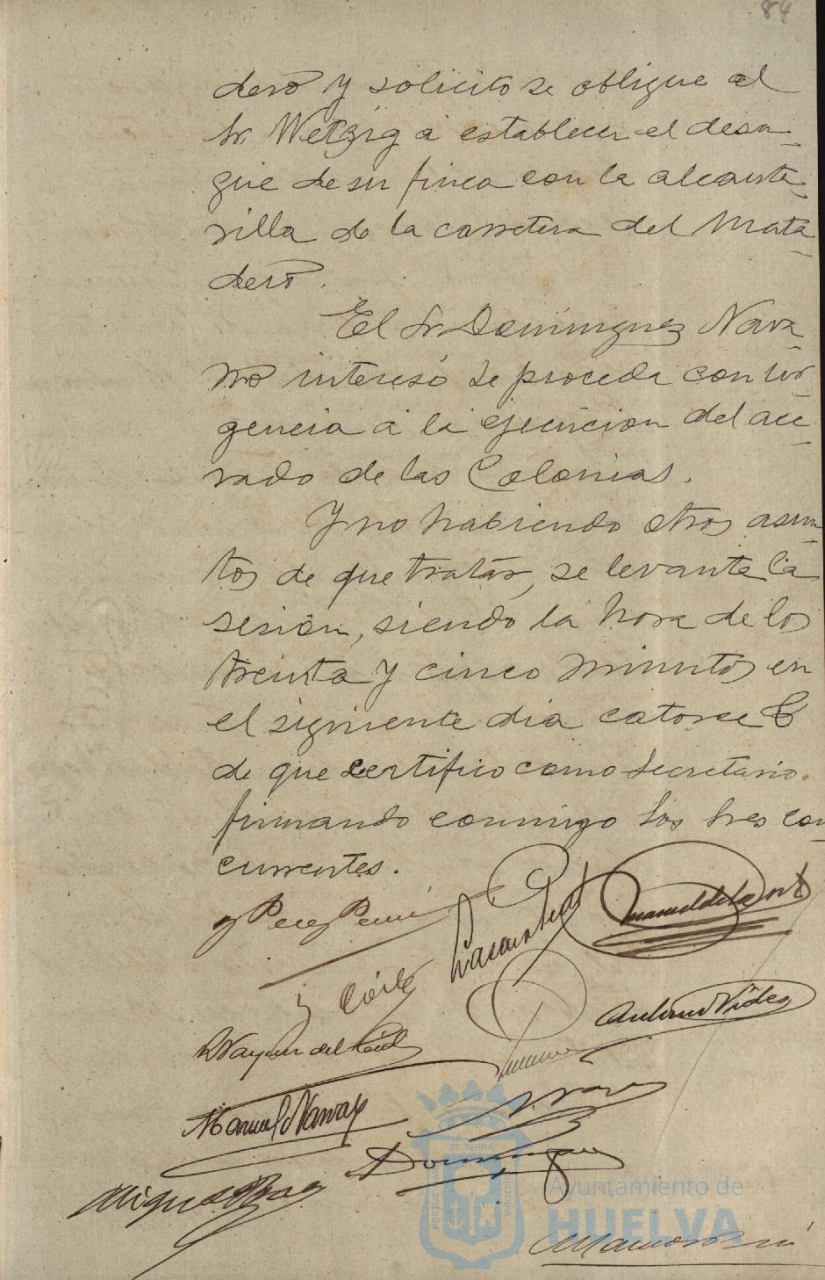 84
dero y solicito se obligue al
Sr. Wetzig a establecer el desa-
güe de su finca con la alcanta-
rilla de la carretera del Mata-
dero.
El Sr. Dominguez Nava-
rro interesó se proceda con ur-
gencia a la ejecucion del ace-
rado de las Colonias.
Y no habiendo otros asun-
tos de que tratar, se levanta la
sesión, siendo la hora de los
treinta y cinco minutos en
el siguiente dia catorce
de que certifico como Secretario
firmando conmigo los tres con-
currentes.
Perez
Manuel de la
Antonio Videa
Manuel Navar
Dominguez
Miguel
Ayuntamiento de
HUELVA